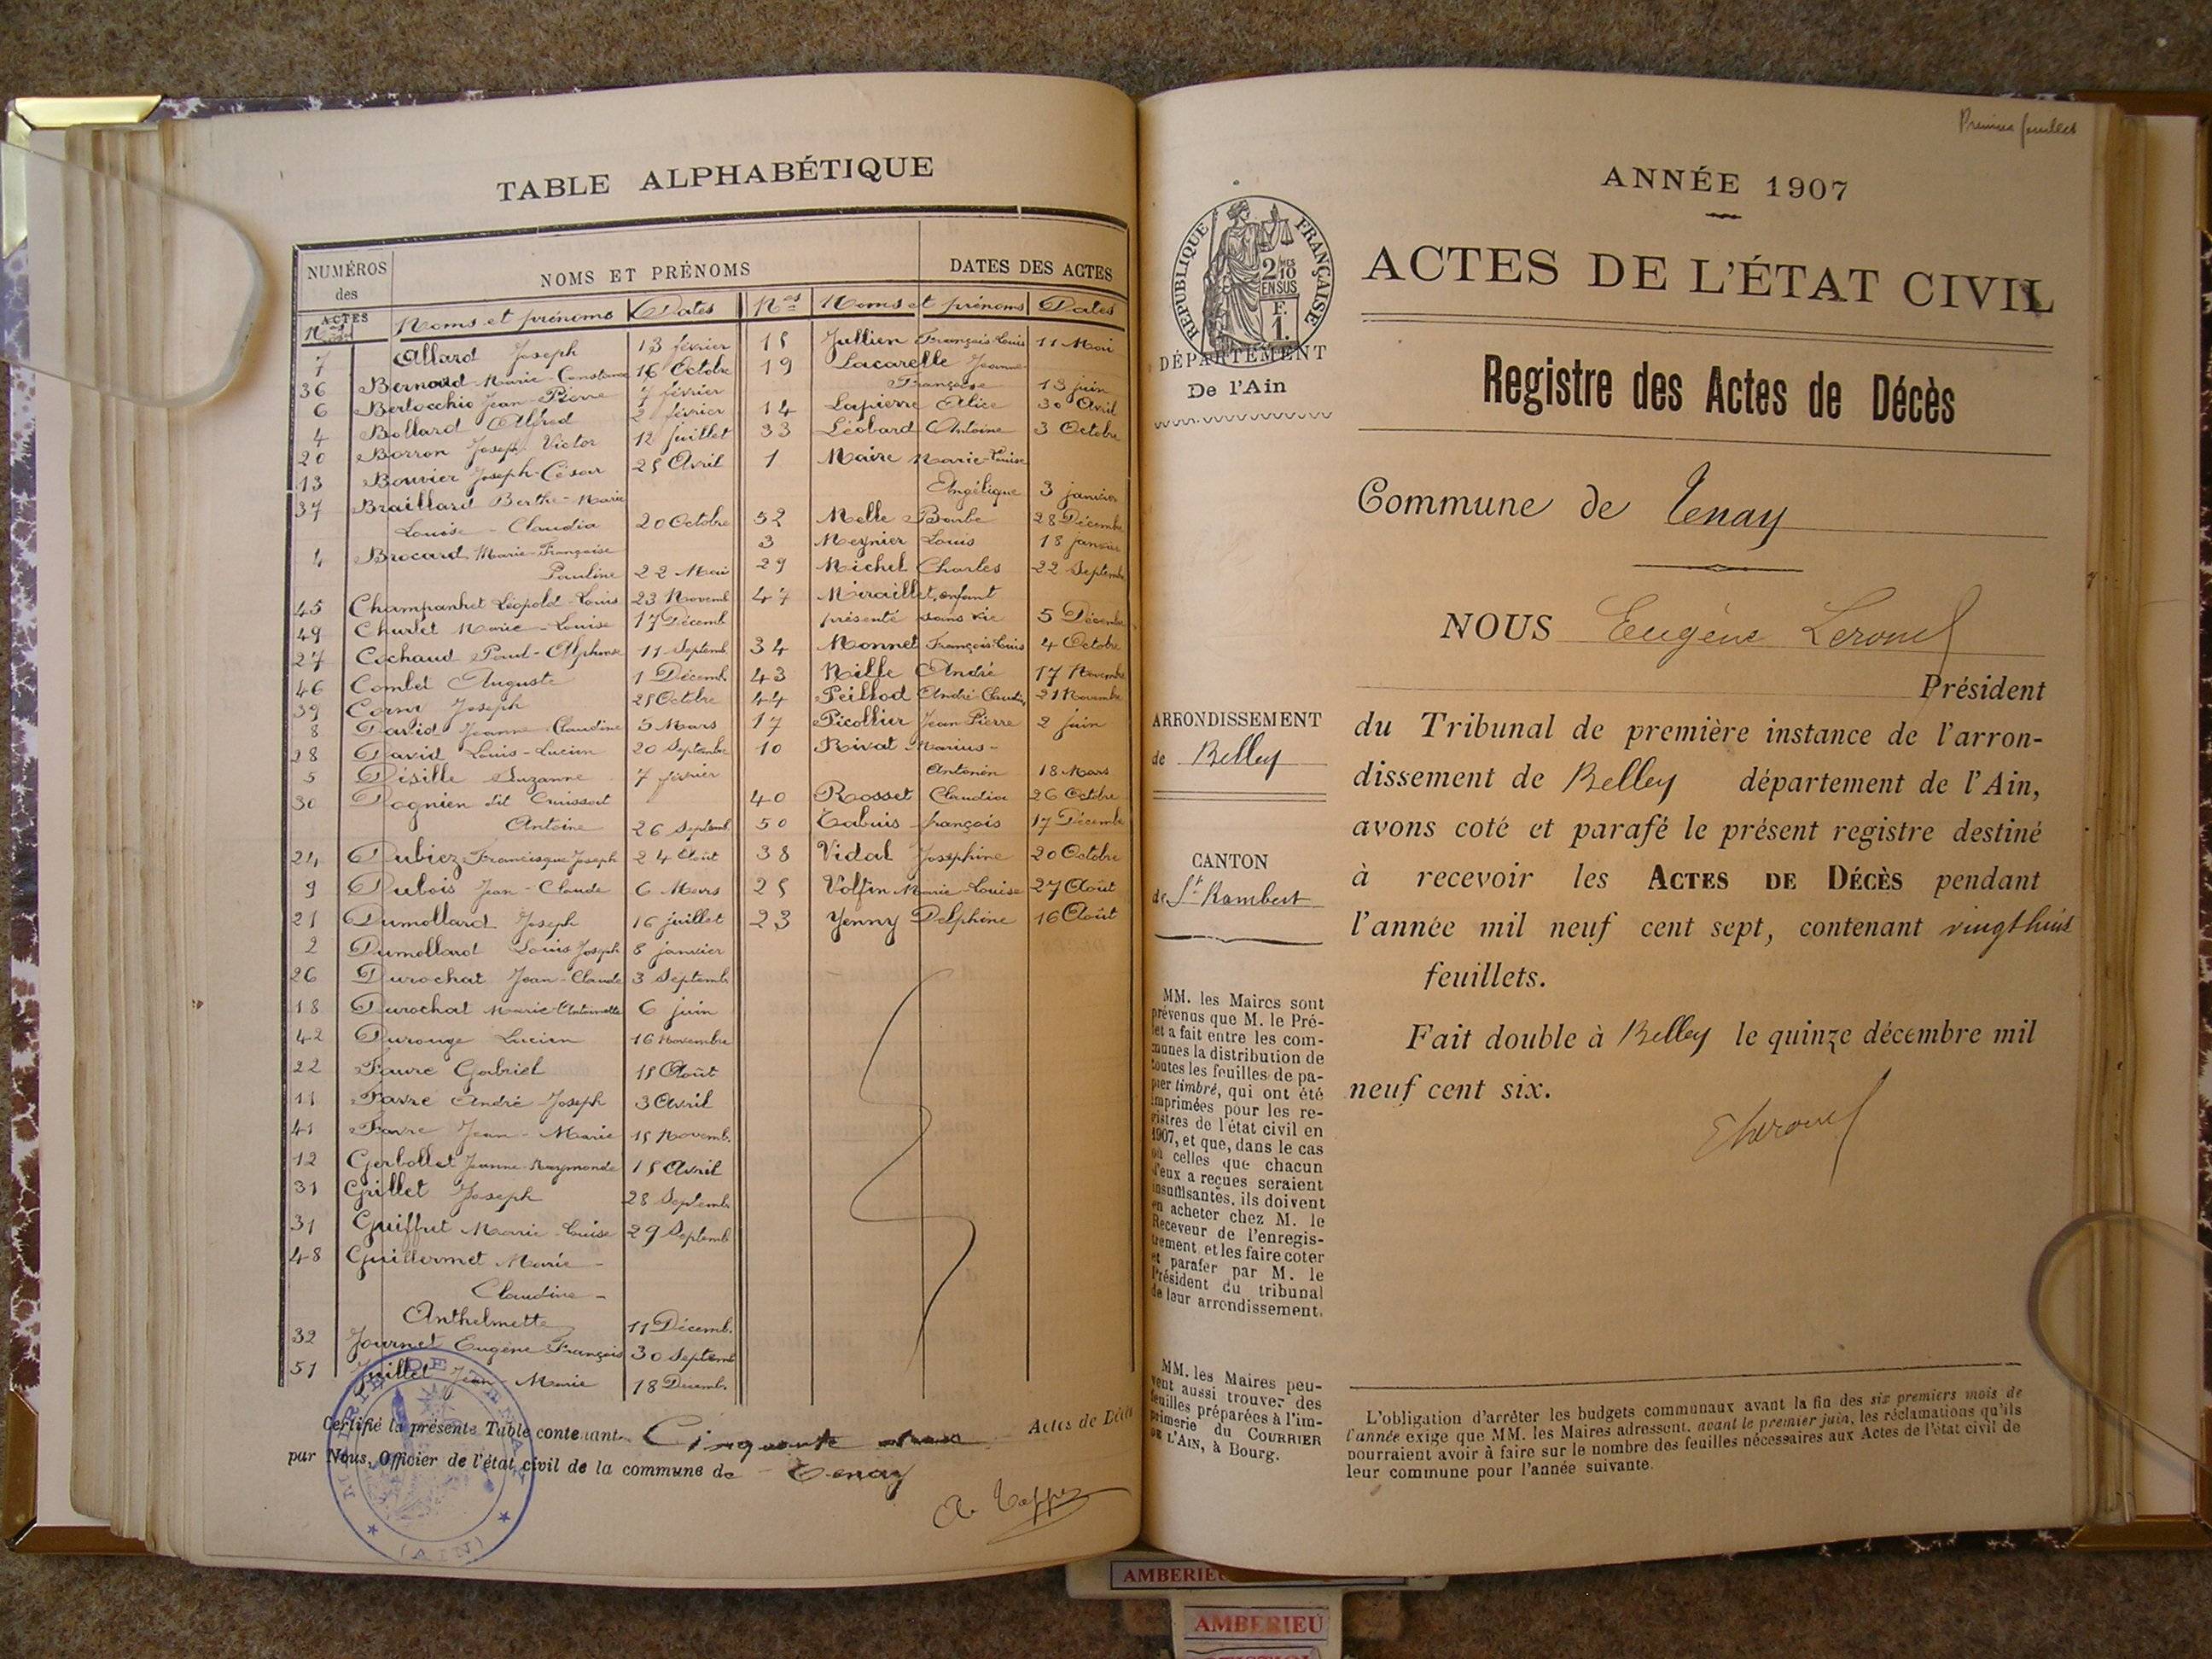 TABLE ALPHABÉTIQUE
NUMÉROS des ACTES NOMS ET PRÉNOMS DATES DES ACTES
Nos Noms et prénoms Dates Nos Noms et prénoms Dates
7 Allard Joseph 13 février
36 Bernard Marie-Constance 16 Octobre
6 Bertocchio Jean-Pierre 7 février
4 Bollard Alfred 2 février
20 Borron Joseph Victor 12 juillet
13 Bouvier Joseph-César 25 Avril
37 Braillard Berthe-Marie
Louise-Claudia 20 Octobre
Brocard Marie-Françoise
Pauline 22 Mai
45 Champanhet Léopold-Louis 23 Novemb
49 Churlet Marie-Louise 17 Décemb
27 Cochaud Paul-Alphonse 11 Septemb
46 Combet Auguste 1 Décemb.
39 Joseph 25 Octobre
8 David Jeanne Claudine 5 Mars
28 David Louis-Lucien 20 Septembre
5 Désille Suzanne 7 février
30 Dagnien dit Cruissat
Antoine 26 Septemb.
24 Dubiez Francisque Joseph 24 Août
9 Dubois Jean-Claude 6 Mars
21 Dumollard Joseph 16 juillet
2 Dumollard Louis Joseph 8 janvier
26 Durochat Jean-Claude 3 Septemb
18 Durochat Marie-Antoinette 6 juin
42 Durouge Lucien 16 Novembre
22 Faure Gabriel 15 Août
11 Favre André Joseph 3 Avril
41 Favre Jean-Marie 15 Novemb.
12 Gerbollet Jeanne-Raymonde 15 Avril
31 Grillet Joseph 28 Septemb
31 Guiffret Marie-Louise 29 Septemb
48 Guillermet Marie-
Claudine-
Anthelmette 11 Décemb.
32 Journet Eugène François 30 Septemb
51 Juillet Jean-Marie 18 Décemb.
15 Jullien François-Louis 11 Mai
19 Lacarelle Jeanne-
Françoise 13 juin
14 Lapierre Alice 30 Avril
33 Léobard Antoine 3 Octobre
1 Maire Marie-Louise
Angélique 3 janvier
52 Melle Barbe 28 Décembre
3 Meynier Louis 18 janvier
29 Michel Charles 22 Septemb
47 Miraillet, enfant
présenté sans vie 5 Décembre
34 Monnet François-Louis 4 Octobre
43 Nille André 17 Novembre
44 Peillod André-Claudius 21 Novembre
17 Picollier Jean Pierre 2 juin
10 Rivat Marius-
Antonin 18 Mars
40 Rosset Claudia 26 Octobre
50 Tabuis françois 17 Décembre
38 Vidal Joséphine 20 Octobre
25 Volfin Marie-Louise 27 Août
23 Yenny Delphine 16 Août
Certifié la présente Table contenant Cinquante Actes de Décès
par Nous, Officier de l'état civil de la commune de Tenay
MAIRIE DE TENAY
(AIN)
Premier feuillet
ANNÉE 1907
ACTES DE L'ÉTAT CIVIL
Registre des Actes de Décès
Commune de Tenay
RÉPUBLIQUE FRANÇAISE
2 MES
10
EN SUS
F.
1.
DÉPARTEMENT
De l'Ain
ARRONDISSEMENT
de Belley
CANTON
de St Rambert
MM. les Maires sont
prévenus que M. le Pré-
fet a fait entre les com-
munes la distribution de
toutes les feuilles de pa-
pier timbré, qui ont été
imprimées pour les re-
gistres de l'état civil en
1907, et que, dans le cas
où celles que chacun
d'eux a reçues seraient
insuffisantes, ils doivent
en acheter chez M. le
Receveur de l'enregis-
trement et les faire coter
et parafer par M. le
Président du tribunal
de leur arrondissement.
MM. les Maires peu-
vent aussi trouver des
feuilles préparées à l'im-
primerie du COURRIER
DE L'AIN, à Bourg.
NOUS Eugène Lerouel
Président
du Tribunal de première instance de l'arron-
dissement de Belley département de l'Ain,
avons coté et parafé le présent registre destiné
à recevoir les ACTES DE DÉCÈS pendant
l'année mil neuf cent sept, contenant vingt huit
feuillets.
Fait double à Belley le quinze décembre mil
neuf cent six.
L'obligation d'arrêter les budgets communaux avant la fin des six premiers mois de
l'année exige que MM. les Maires adressent, avant le premier juin, les réclamations qu'ils
pourraient avoir à faire sur le nombre des feuilles nécessaires aux Actes de l'état civil de
leur commune pour l'année suivante.
AMBERIEU
AMBERIEU